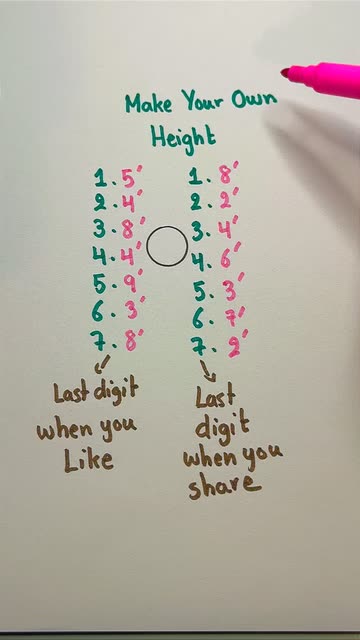 Make Your Own
Height
1. 5'
2. 4'
3. 8'
4. 4'
5. 9'
6. 3'
7. 8'
Last digit
when you
Like
1. 8'
2. 2'
3. 4'
4. 6'
5. 3'
6. 7'
7. 2'
Last
digit
when you
share